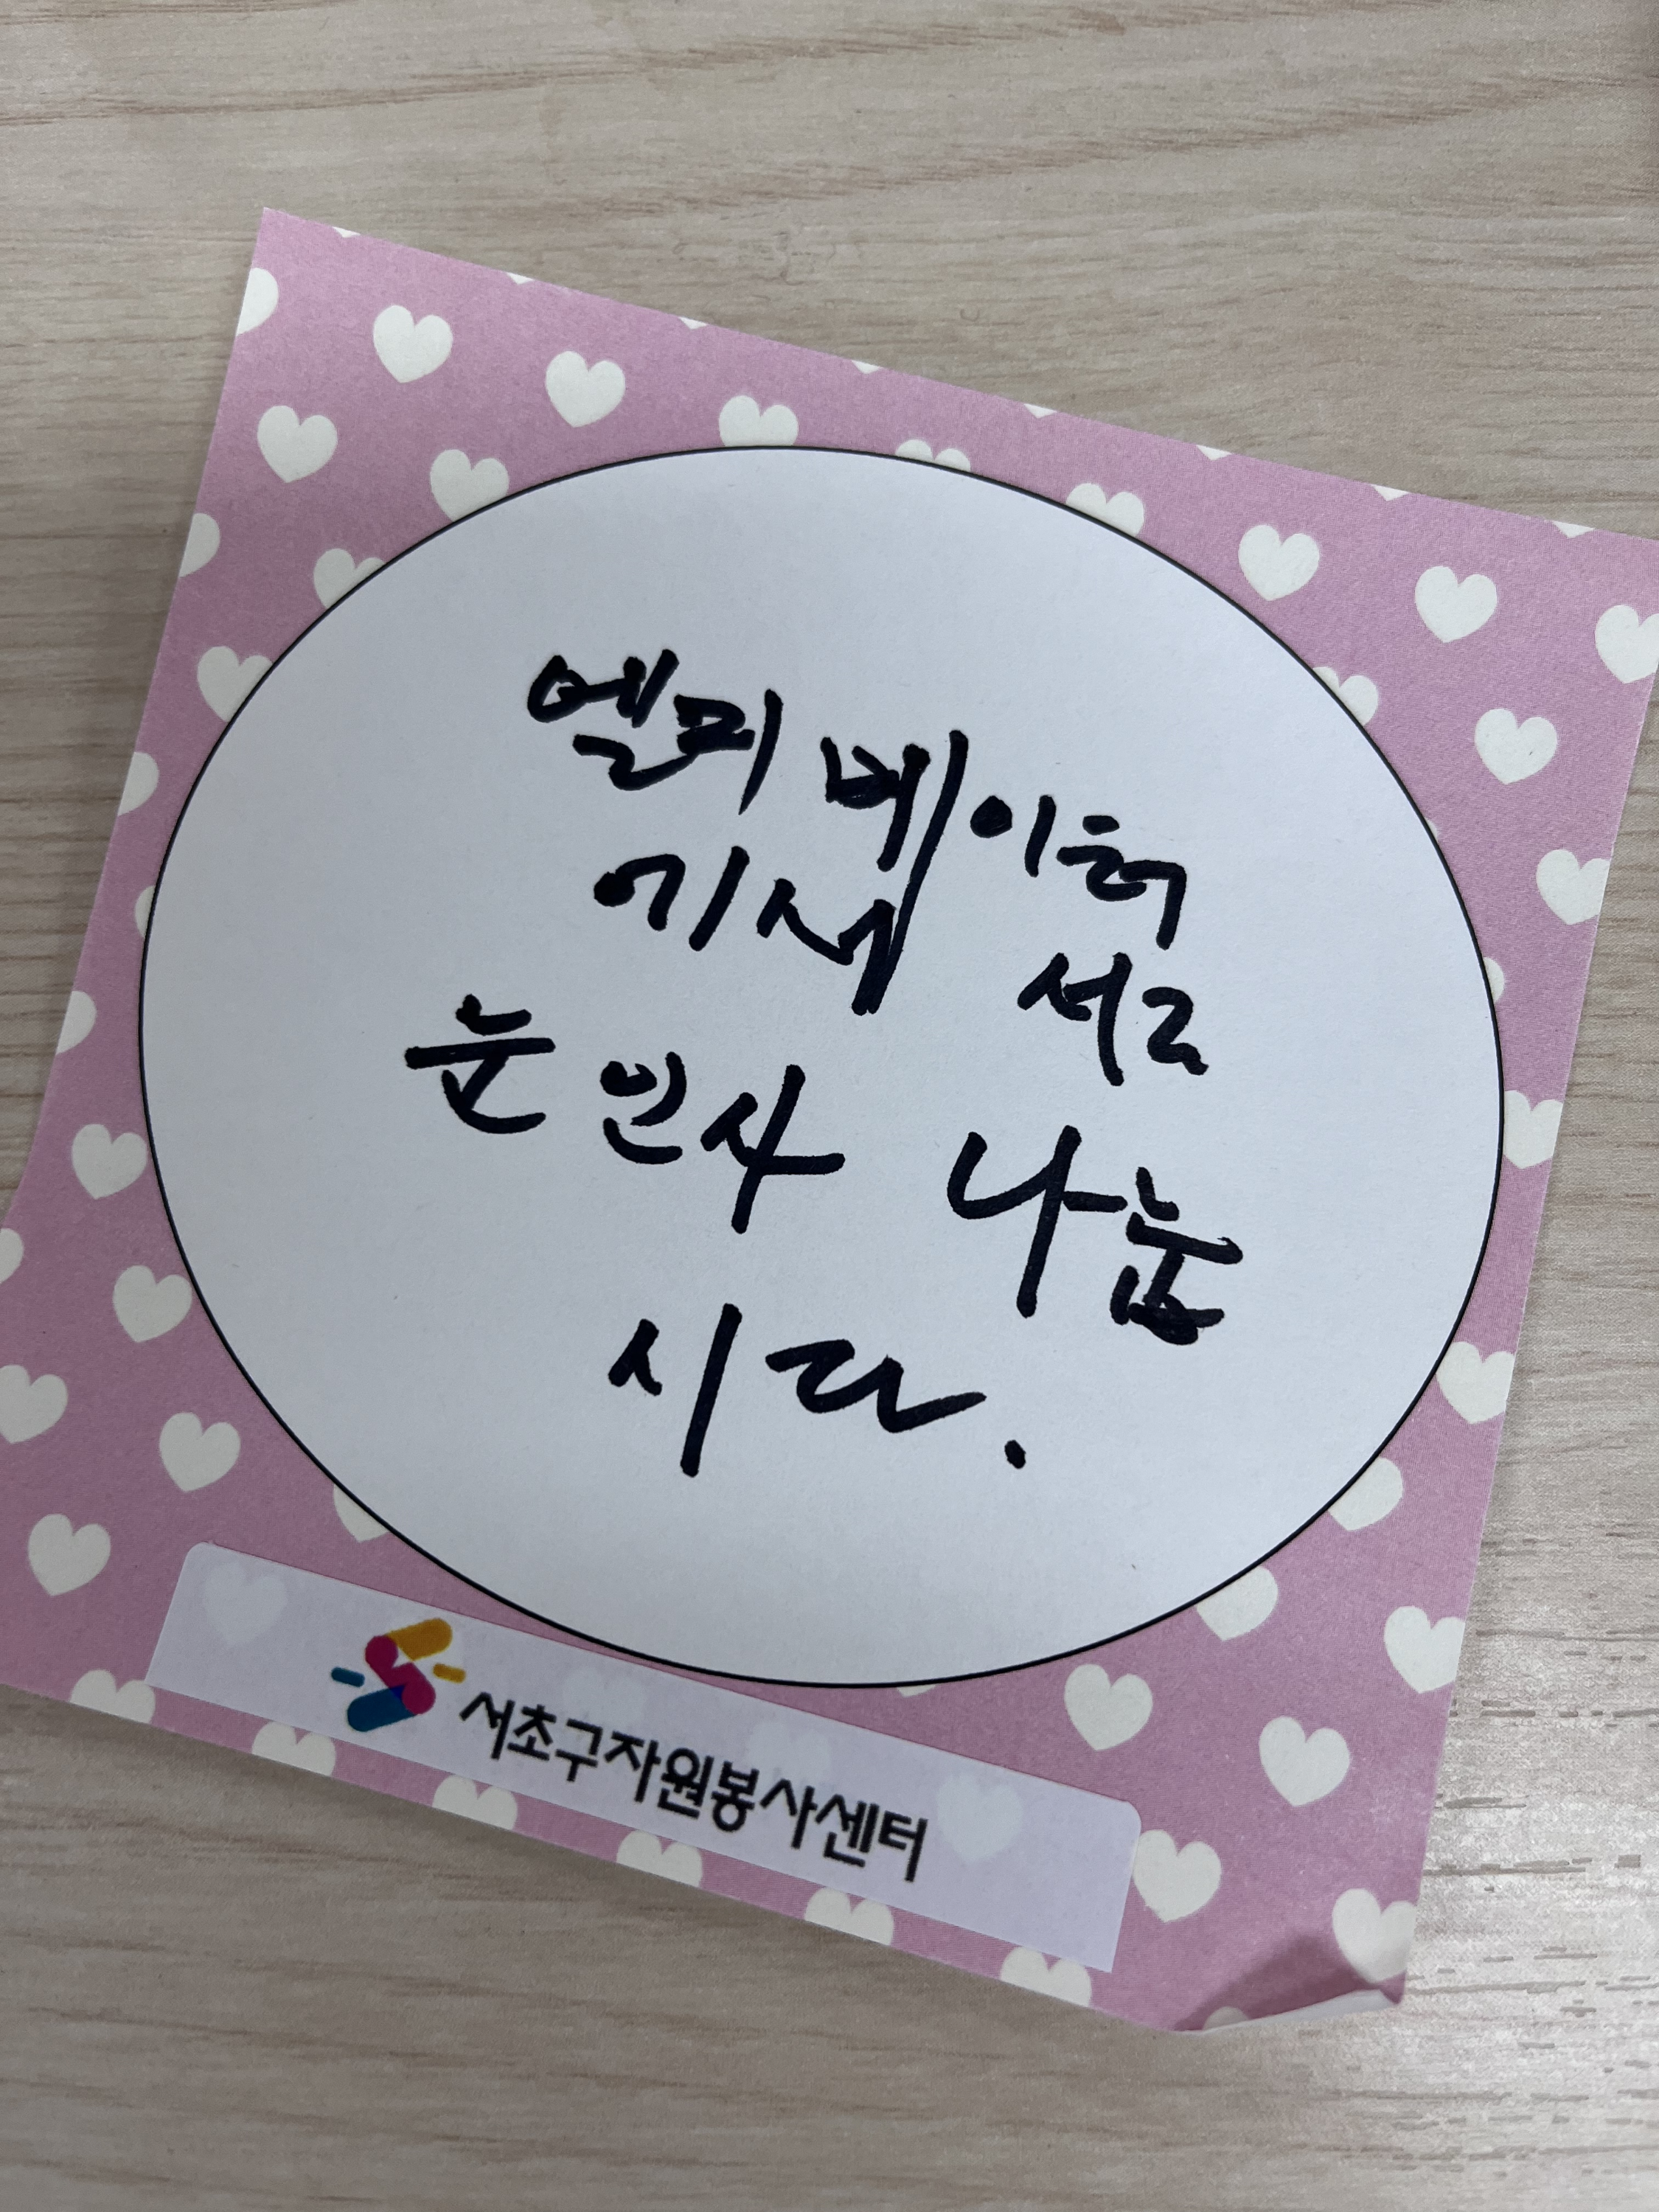 엘리베이터
에서 서로
눈인사 나눕
시다.
서초구자원봉사센터